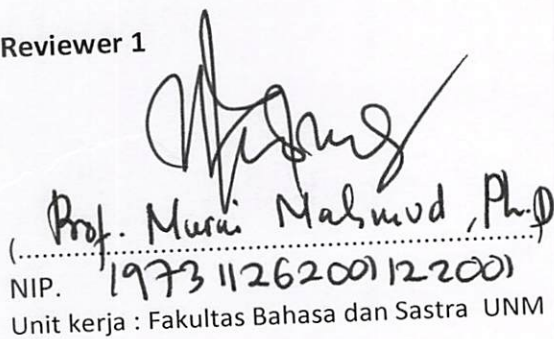 Reviewer 1
Prof. Murni Mahmud, Ph.D
(....................................................)
NIP. 197311262001122001
Unit kerja : Fakultas Bahasa dan Sastra UNM